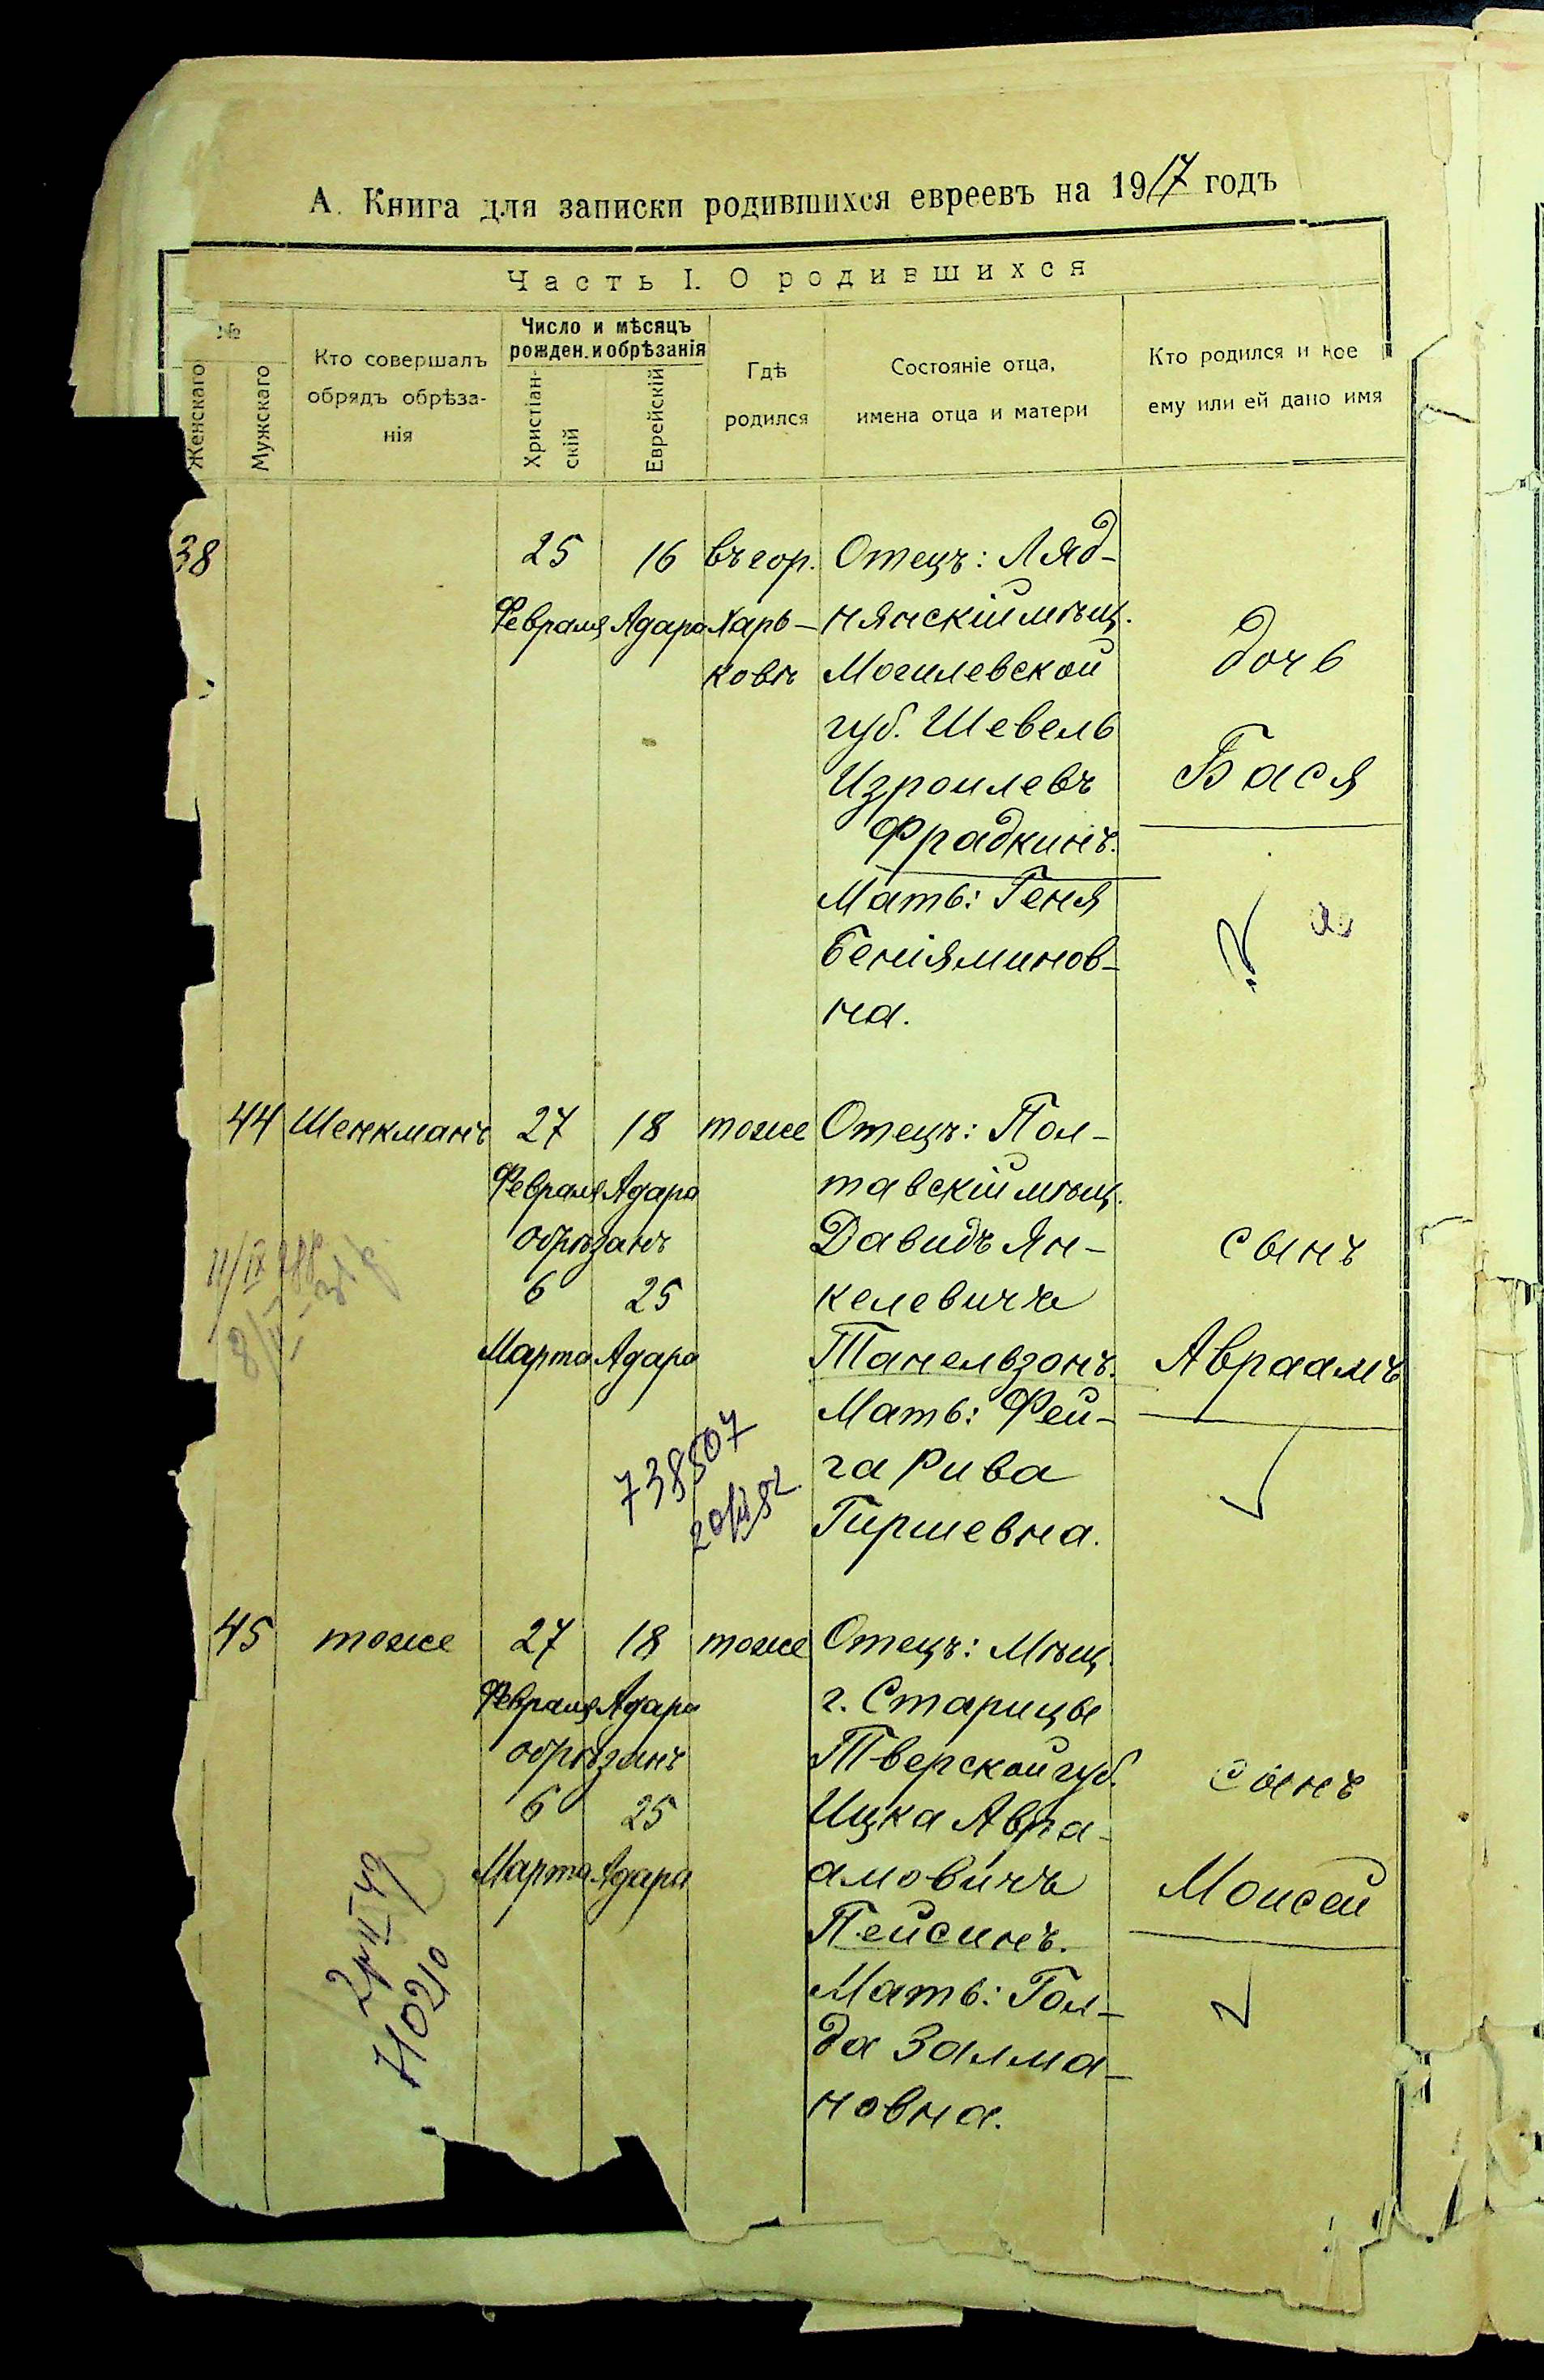 А. Книга для записки родившихся евреевъ на 1917 годъ
Часть I. О родившихся
№
Женскаго
Мужскаго
Кто совершалъ
обрядъ обрѣза-
нія
Число и мѣсяцъ
рожден. и обрѣзанія
Христіан-
скій
Еврейскій
Гдѣ
родился
Состояніе отца,
имена отца и матери
Кто родился и кое
ему или ей дано имя
38
25
Февраля
16
Адара
въ гор.
Харь-
ковѣ
Отецъ: Ляд-
нянскій мѣщ.
Могилевской
губ. Шевель
Изроилевъ
Фрадкинъ.
Мать: Геня
Беніяминов-
на.
дочь
Бася
44
Шенкманъ
27
Февраля
18
Адара
обрѣзанъ
6
Марта
25
Адара
тоже
Отецъ: Пол-
тавскій мѣщ.
Давидъ Ян-
келевичъ
Танельзонъ.
Мать: Фей-
га Рива
Гиршевна.
сынъ
Авраамъ
738507
45
тоже
27
Февраля
18
Адара
обрѣзанъ
6
Марта
25
Адара
тоже
Отецъ: Мѣщ.
г. Старицы
Тверской губ.
Ицка Авра-
амовичъ
Пейсинъ.
Мать: Гол-
да Залма-
новна.
сынъ
Моисей